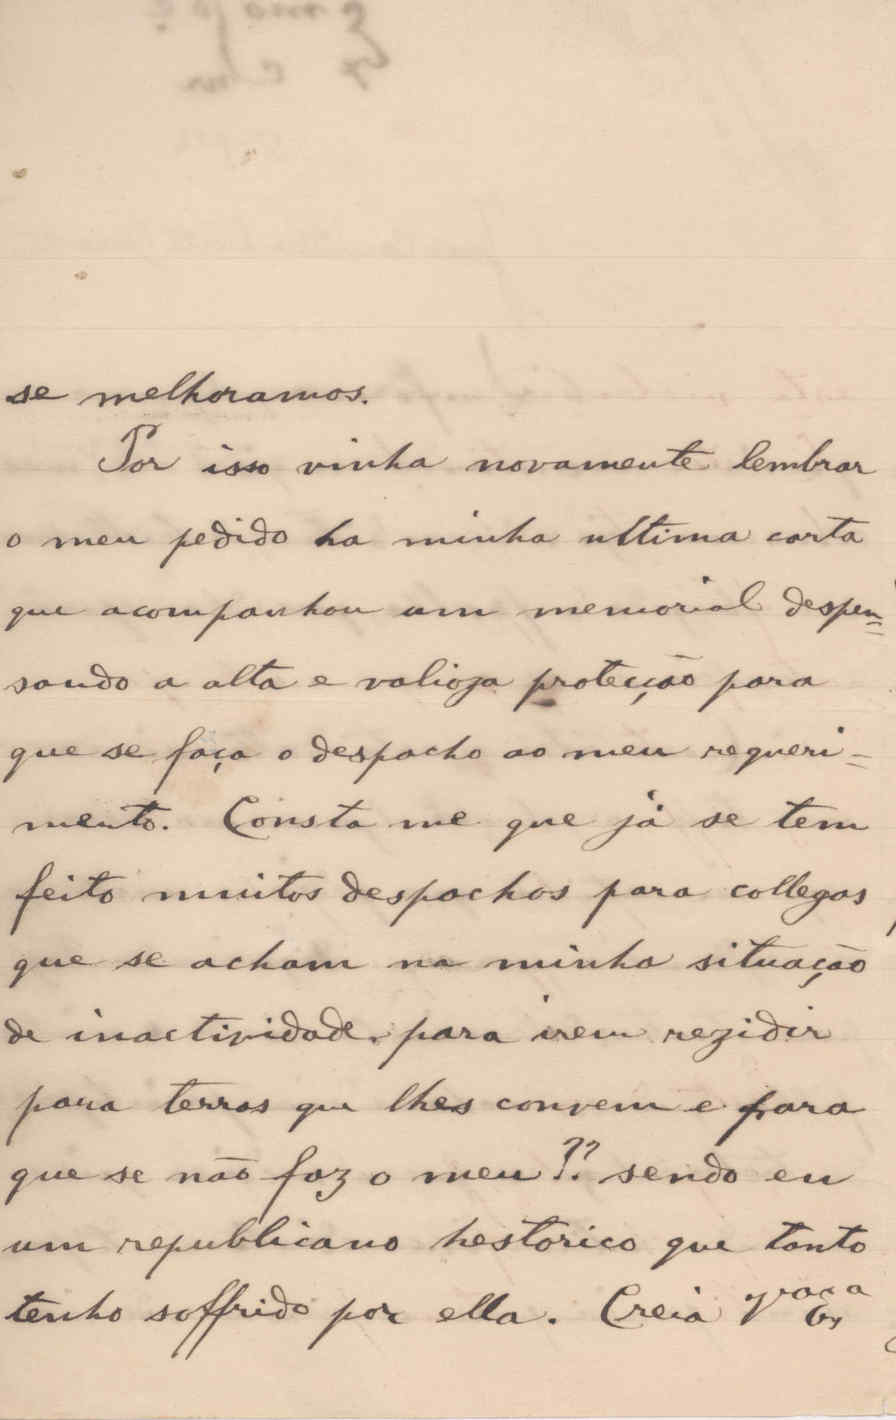 se melhoramos.
Por isso vinha novamente lembrar
o meu pedido ha minha ultima carta
que acompanhou um memorial despen=
sando a alta e valioza protecção para
que se faça o despacho ao meu requeri=
mento. Consta me que já se tem
feito muitos despachos para collegas
que se acham na minha situação
de inactividade. para irem rezidir
para terras que lhes convem e para
que se não faz o meu?? sendo eu
um republicano hestorico que tanto
tenho soffrido por ella. Creia Vaça Exa